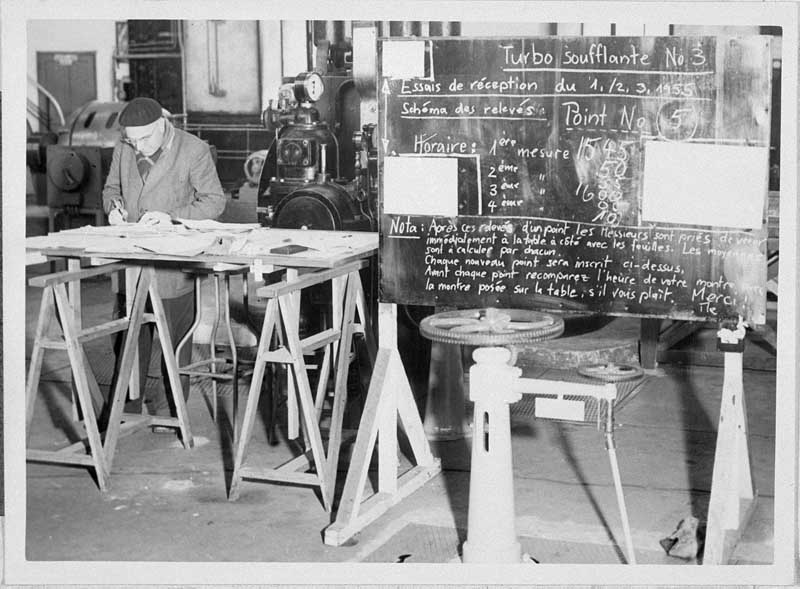 Turbo soufflante No 3.
Essais de réception du 1./2. 3. 1955
Schéma des relevés
Point No 5
Horaire:
1ère mesure 1545
2ème "
3ème "
4ème "
Nota: Après ces relevés d'un point les Messieurs sont priés de venir
immédiatement à la table à côté avec les feuilles. Les moyennes
sont à calculer par chacun.
Chaque nouveau point sera inscrit ci-dessus,
Avant chaque point recomparez l'heure de votre montre avec
la montre posée sur la table, s'il vous plaît. Merci!